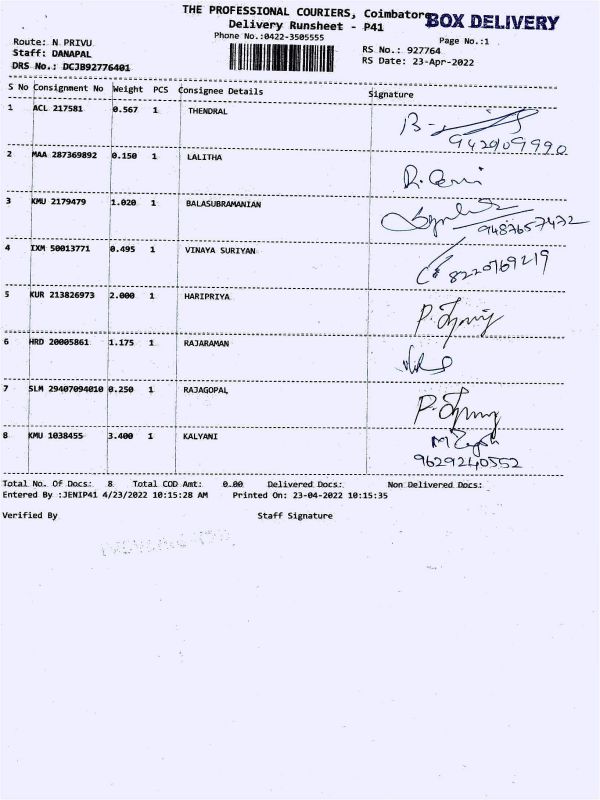 THE PROFESSIONAL COURIERS, Coimbatore
BOX DELIVERY
Delivery Runsheet - P41
Phone No.:0422-3505555
Page No.:1
Route: N PRIVU
Staff: DANAPAL
DRS No.: DCJB92776401
RS No.: 927764
RS Date: 23-Apr-2022
S No Consignment No Weight PCS Consignee Details Signature
1 ACL 217581 0.567 1 THENDRAL
9429109990
2 MAA 287369892 0.150 1 LALITHA
3 KMU 2179479 1.020 1 BALASUBRAMANIAN
9487657472
4 IXM 50013771 0.495 1 VINAYA SURIYAN
8220769219
5 KUR 213826973 2.000 1 HARIPRIYA
6 HRD 20005861 1.175 1 RAJARAMAN
7 SLM 29407094010 0.250 1 RAJAGOPAL
8 KMU 1038455 3.400 1 KALYANI
9629240552
Total No. Of Docs: 8 Total COD Amt: 0.00 Delivered Docs: Non Delivered Docs:
Entered By :JENIP41 4/23/2022 10:15:28 AM Printed On: 23-04-2022 10:15:35
Verified By Staff Signature